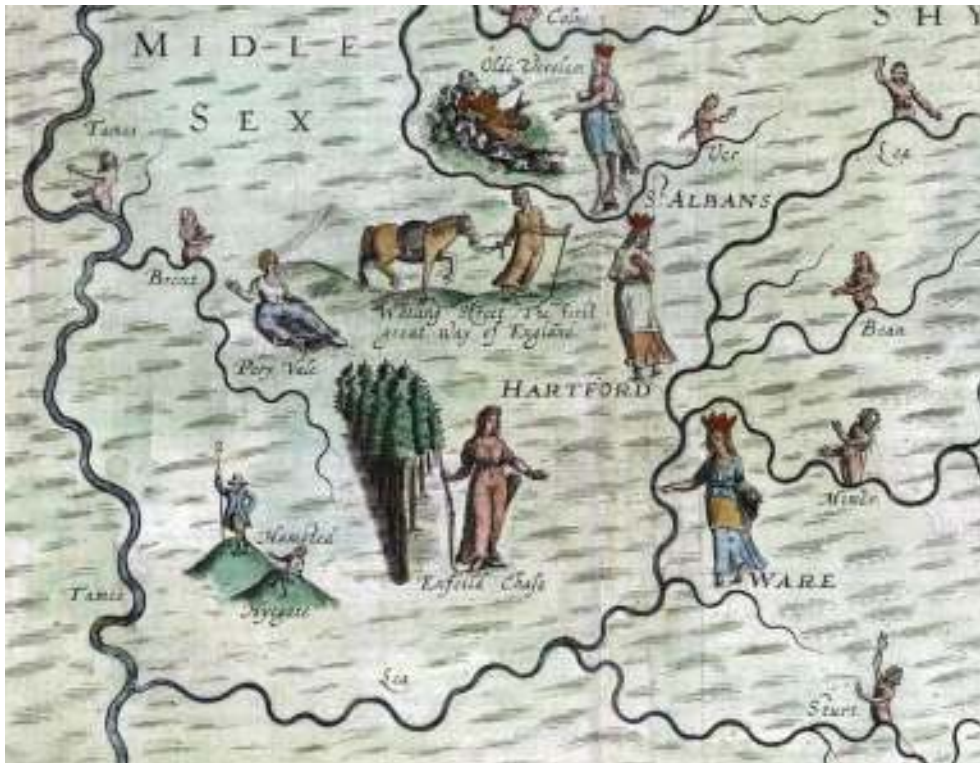 Coln
SHY
MIDLE
SEX
Olde Verolam
Tames
Ver
Lea
St. ALBANS
Brent
Watling Street The first
great Way of England
Bean
Pery Vale
HARTFORD
Mimer
Hamsted
Hygate
Enfeild Chase
WARE
Tames
Lea
Sturt